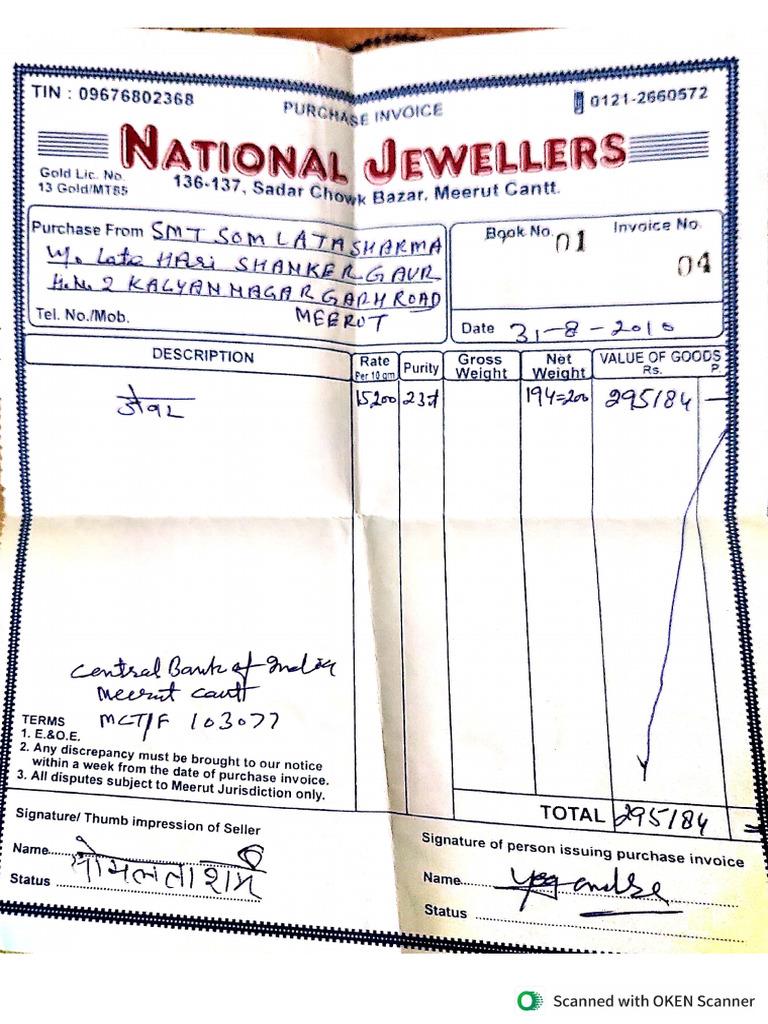 TIN : 09676802368
PURCHASE INVOICE
0121-2660572
NATIONAL JEWELLERS
Gold Lic. No.
13 Gold/MT85
136-137, Sadar Chowk Bazar, Meerut Cantt.
Purchase From SMT SOM LATA SHARMA
W/o Late HARI SHANKER GAUR
H.No 2 KALYAN NAGAR GARH ROAD
MEERUT
Tel. No./Mob.
Book No. 01
Invoice No. 04
Date 31-8-2010
DESCRIPTION
Rate
Per 10 gm
Purity
Gross
Weight
Net
Weight
VALUE OF GOODS
Rs. P.
जेवर 15200 23 194=200 295184 —
Central Bank of India
Meerut Cantt
MCT/F 103077
TERMS
1. E.&O.E.
2. Any discrepancy must be brought to our notice
within a week from the date of purchase invoice.
3. All disputes subject to Meerut Jurisdiction only.
TOTAL 295184 =
Signature/ Thumb impression of Seller
Name सोमलता शर्मा
Status
Signature of person issuing purchase invoice
Name
Status
Scanned with OKEN Scanner